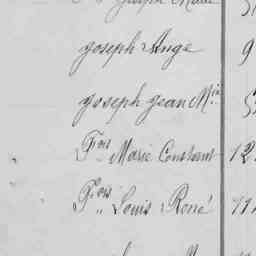 Joseph Marie
joseph Ange 9
joseph jean Mie
Fois Marie Constant 12
Fois Louis René 11